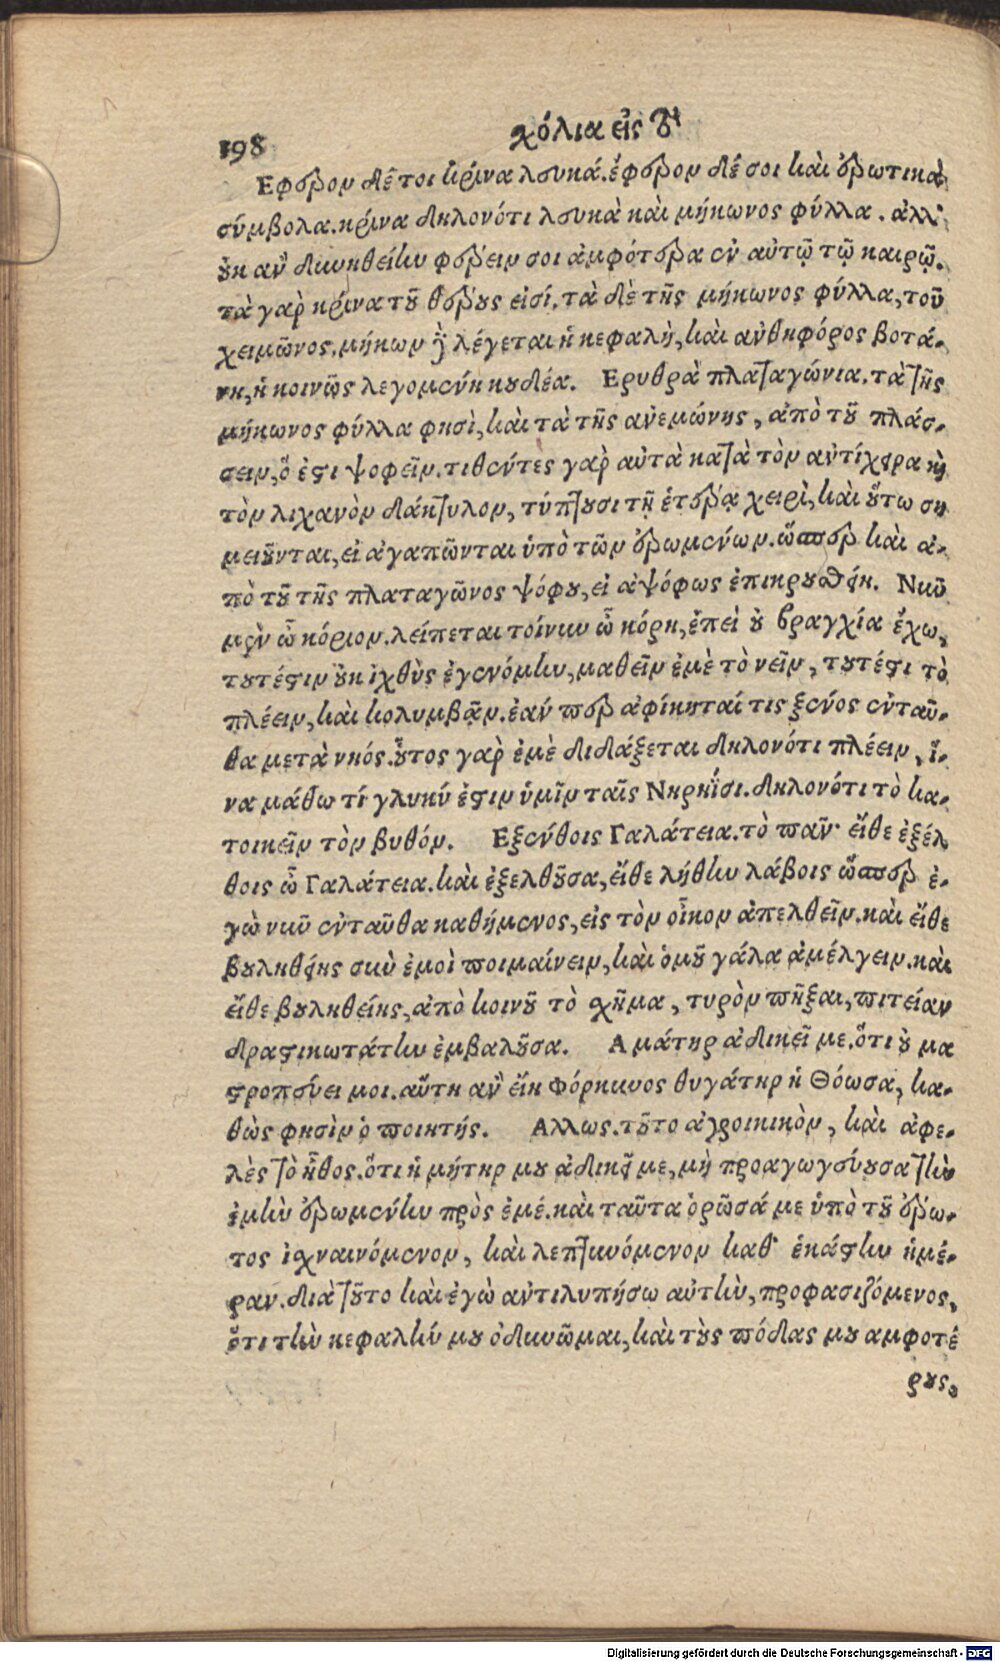 198 χόλια εἰς τὸ
Εφερον δέ τοι κρίνα λευκά. ἔφερον δέ σοι καὶ ἐρωτικὰ
σύμβολα. κρίνα δηλονότι λευκὰ καὶ μήκωνος φύλλα. ἀλλ'
οὐκ ἂν δυνηθείην φέρειν σοι ἀμφότερα ἐν αὐτῷ τῷ καιρῷ.
τὰ γὰρ κρίνα τοῦ θέρους εἰσί. τὰ δὲ τῆς μήκωνος φύλλα, τοῦ
χειμῶνος. μήκων γὰρ λέγεται ἡ κεφαλὴ, καὶ ἀνθηφόρος βοτά-
νη, ἡ κοινῶς λεγομένη κουδέα. Ερυθρὰ πλαταγώνια. τὰ τῆς
μήκωνος φύλλα φησὶ, καὶ τὰ τῆς ἀνεμώνης, ἀπὸ τοῦ πλάσ-
σειν, ὅ ἐστι ψοφεῖν. τιθέντες γὰρ αὐτὰ κατὰ τὸν ἀντίχειρα καὶ
τὸν λιχανὸν δάκτυλον, τύπτουσι τῇ ἑτέρᾳ χειρὶ, καὶ οὕτω ση
μειοῦνται, εἰ ἀγαπῶνται ὑπὸ τῶν ἐρωμένων. ὥσπερ καὶ ἀ-
πὸ τοῦ τῆς πλαταγῶνος ψόφου, εἰ ἀψόφως ἐπικρουσθείη. Νῦν
μὲν ὦ κόριον. λείπεται τοίνυν ὦ κόρη, ἐπεὶ οὐ βραγχία ἔχω,
τουτέστιν οὐκ ἰχθὺς ἐγενόμην, μαθεῖν ἐμὲ τὸ νεῖν, τουτέστι τὸ
πλέειν, καὶ κολυμβᾶν. ἐάν περ ἀφίκηταί τις ξένος ἐνταῦ-
θα μετὰ νηός. οὗτος γὰρ ἐμὲ διδάξεται δηλονότι πλέειν, ἵ-
να μάθω τί γλυκύ ἐστιν ὑμῖν ταῖς Νηρηΐσι. δηλονότι τὸ κα-
τοικεῖν τὸν βυθόν. Εξένθοις Γαλάτεια. τὸ πᾶν· εἴθε ἐξέλ
θοις ὦ Γαλάτεια. καὶ ἐξελθοῦσα, εἴθε λήθην λάβοις ὥσπερ ἐ-
γὼ νῦν ἐνταῦθα καθήμενος, εἰς τὸν οἶκον ἀπελθεῖν. καὶ εἴθε
βουληθείης σὺν ἐμοὶ ποιμαίνειν, καὶ ὁμοῦ γάλα ἀμέλγειν. καὶ
εἴθε βουληθείης, ἀπὸ κοινοῦ τὸ σχῆμα, τυρὸν πῆξαι, πιτείαν
δραστικωτάτην ἐμβαλοῦσα. Α μάτηρ ἀδικεῖ με. ὅτι οὐ μα
στροπεύει μοι. αὕτη ἂν εἴη Φόρκυνος θυγάτηρ ἡ Θόωσα, κα-
θὼς φησὶν ὁ ποιητής. Αλλως. τοῦτο ἀγροικικὸν, καὶ ἀφε-
λὲς τὸ ἦθος. ὅτι ἡ μήτηρ μου ἀδικεῖ με, μὴ προαγωγεύουσα τὴν
ἐμὴν ἐρωμένην πρὸς ἐμέ. καὶ ταῦτα ὁρῶσά με ὑπὸ τοῦ ἔρω-
τος ἰχναινόμενον, καὶ λεπτυνόμενον καθ' ἑκάστην ἡμέ-
ραν. διὰ τοῦτο καὶ ἐγὼ ἀντιλυπήσω αὐτὴν, προφασιζόμενος,
ὅτι τὴν κεφαλήν μου ὀδυνῶμαι, καὶ τοὺς πόδας μου ἀμφοτέ
ρους.
Digitalisierung gefördert durch die Deutsche Forschungsgemeinschaft - DFG